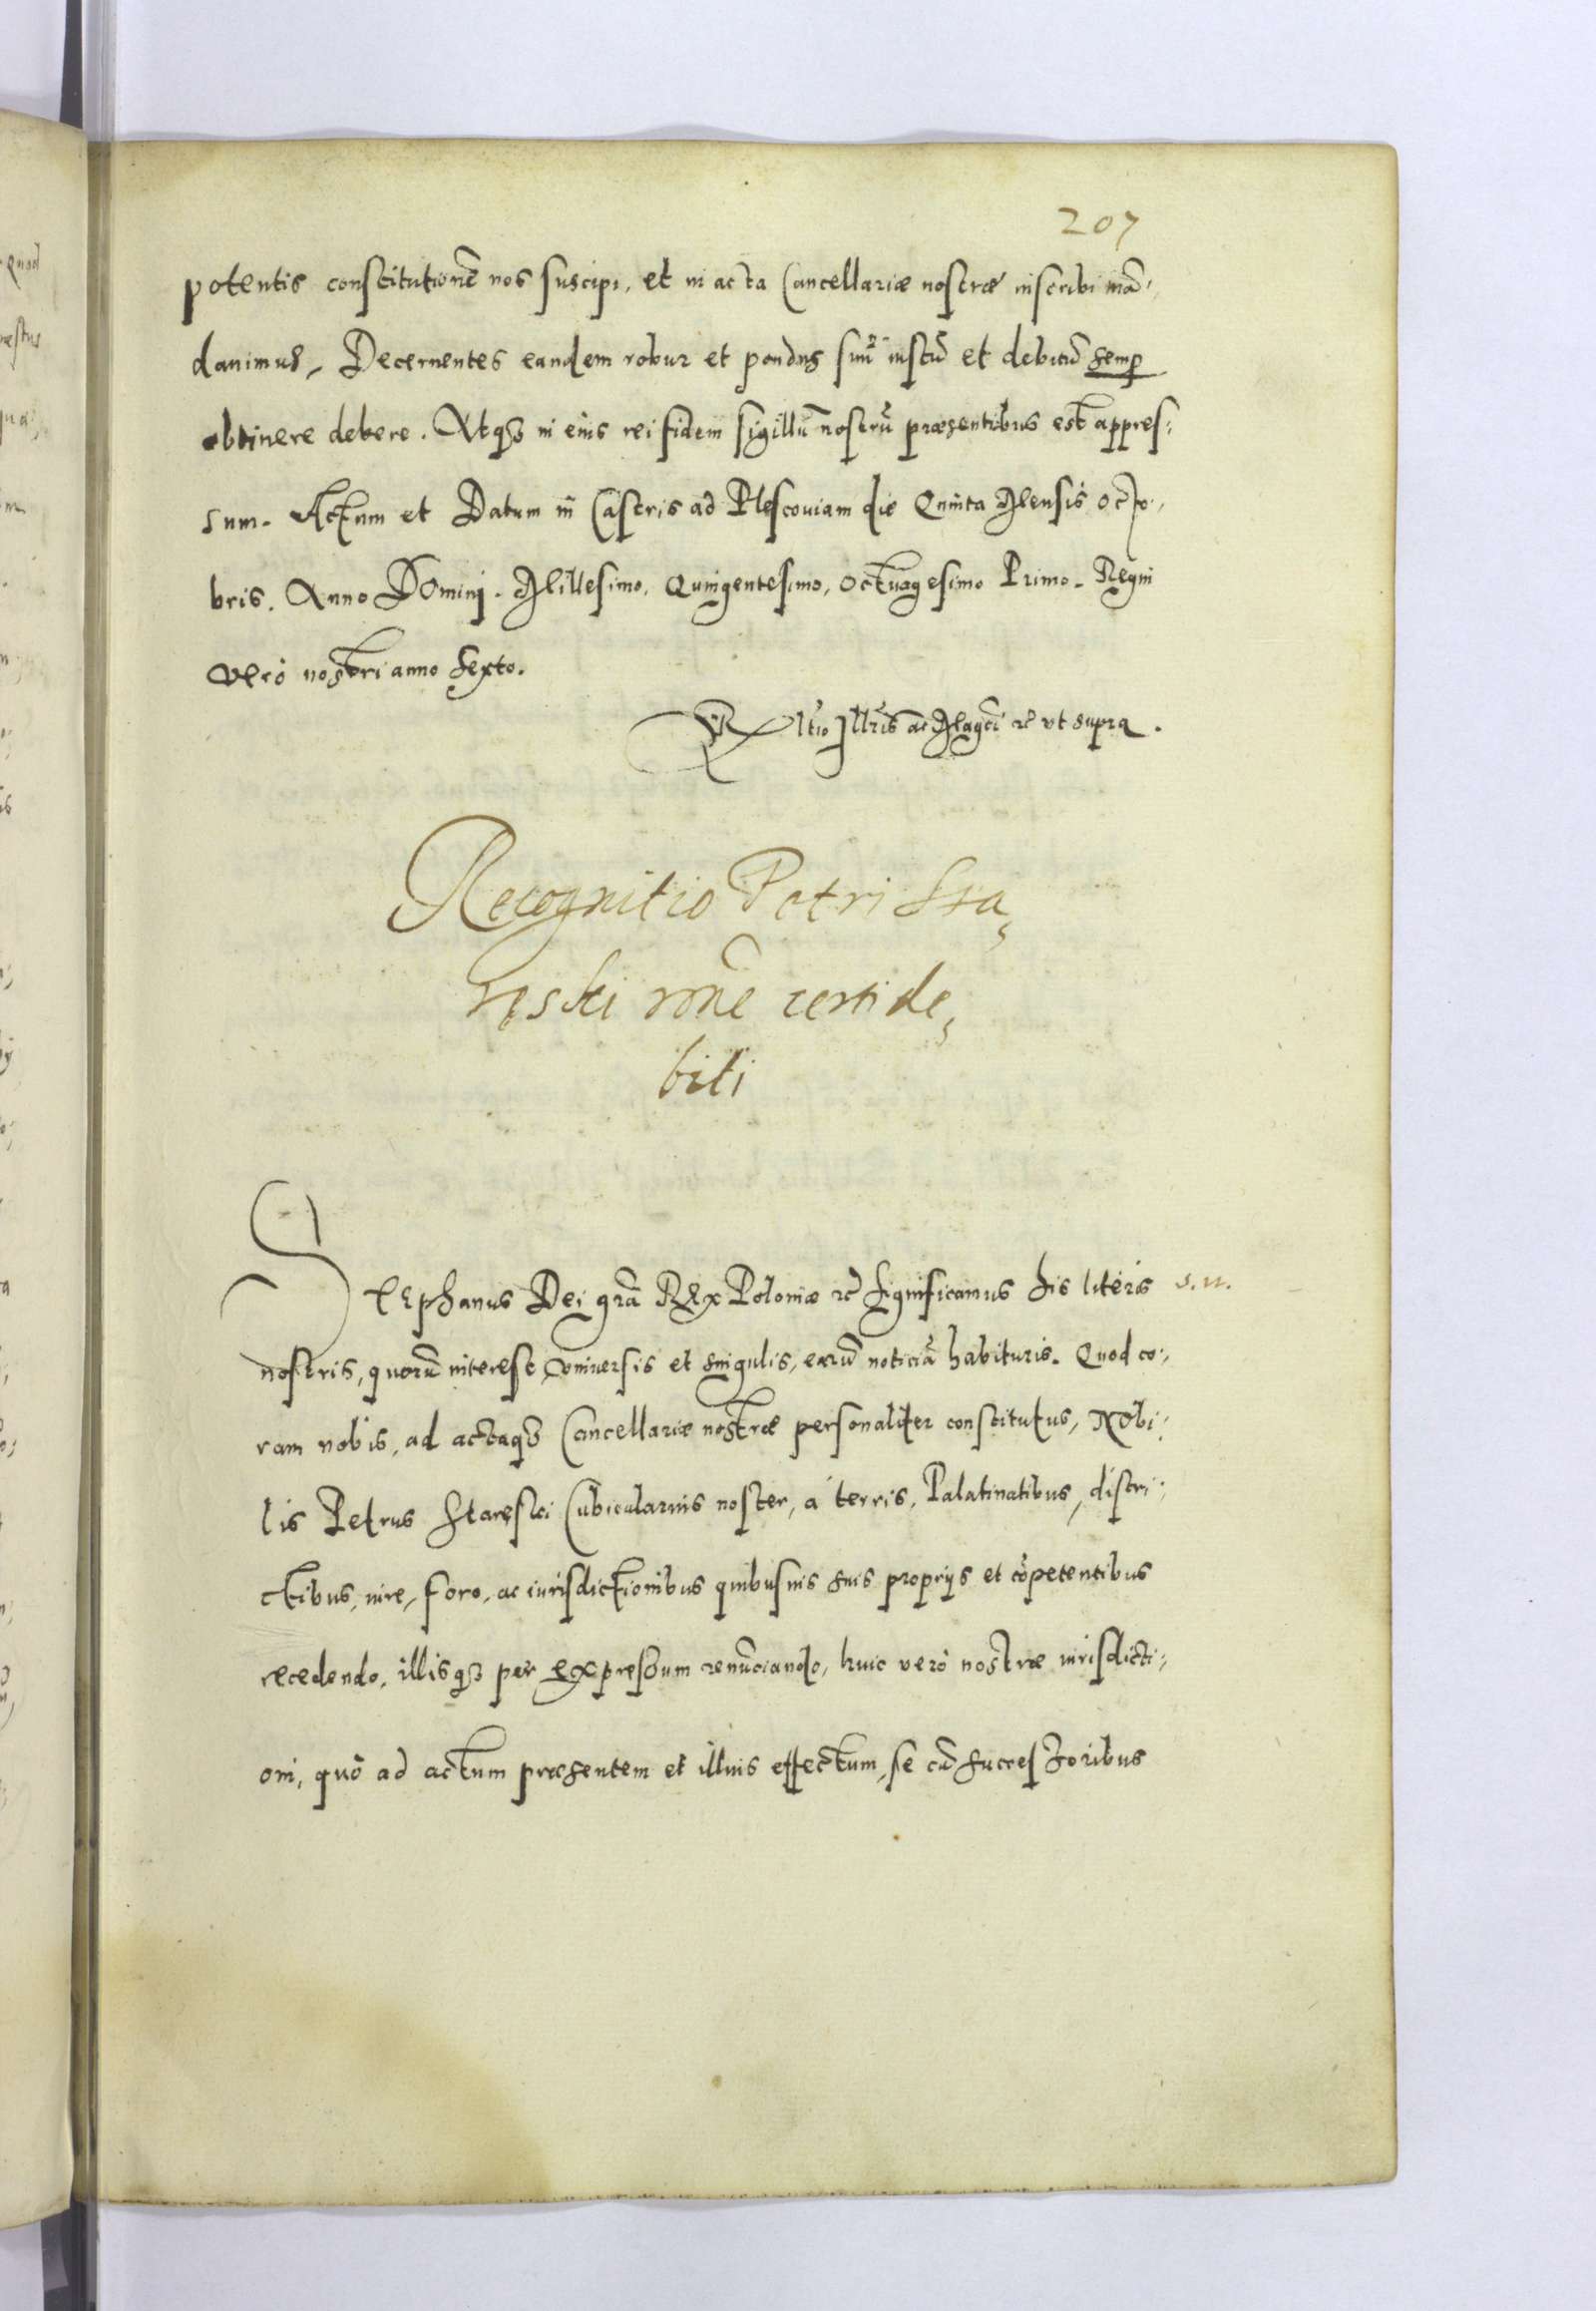 207
potentis constitutionē nos suscipi, et in acta Cancellariæ nostræ inscribi mā-
dauimus, Decernentes eandem robur et pondus suū iustū et debitū semp
obtinere debere. Atqȝ in eius rei fidem sigillū nostrū præsentibus est appres-
sum. Actum et Datum in Castris ad Plescouiam die Quinta Mensis Octo-
bris. Anno DOmini. Millesimo, Quingentesimo, Octuagesimo Primo. Regni
verò nostri anno sexto.
Rltio Illris ac Magci rc vt supra.
Recognitio Petri Sta,
ręski rōne certi de,
biti
STEphanus Dei grā REx Poloniæ rc Significamus his literis s. n.
nostris, quorū interest, vniuersis et singulis, earū noticiā habituris. Quod co-
ram nobis, ad actaqȝ Cancellariæ nostræ personaliter constitutus, NObi-
lis Petrus Staręski Cubicularius noster, à terris, Palatinatibus, distri-
ctibus, iure, foro, ac iurisdictionibus quibusuis suis proprijs et cōpetentibus
recedendo, illisqȝ per expressum renūciando, huic verò nostræ iurisdicti-
oni, quò ad actum præsentem et illius effectum, se cū successoribus